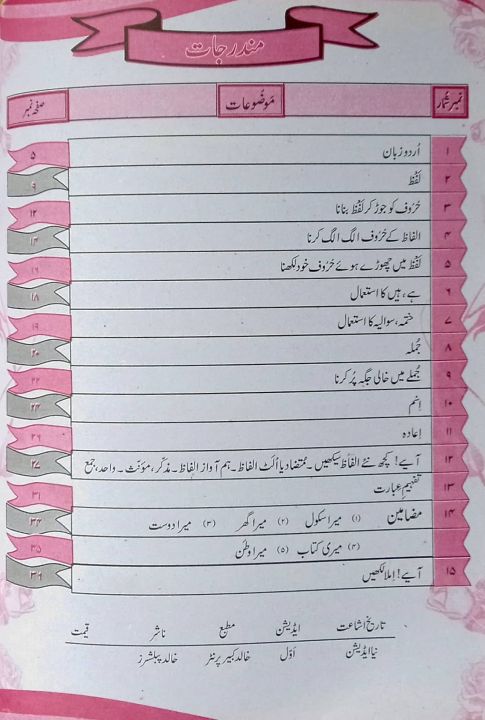 مندرجات
نمبر شمار موضُوعات صفحہ نمبر
۱ اُردو زبان ۵
۲ لفظ ۹
۳ حرُوف کو جوڑ کر لفظ بنانا ۱۲
۴ الفاظ کے حرُوف الگ الگ کرنا ۱۴
۵ لفظ میں چھوڑے ہوئے حرُوف خود لکھنا ۱۶
۶ ہے، ہیں کا استعمال ۱۸
۷ ختمہ، سوالیہ کا استعمال ۱۹
۸ جُملہ ۲۰
۹ جُملے میں خالی جگہ پُر کرنا ۲۲
۱۰ اِسْم ۲۴
۱۱ اِعادہ ۲۶
۱۲ آیے! کچھ نئے الفاظ سیکھیں۔ مُتضاد یا اُلٹ الفاظ۔ ہم آواز الفاظ۔ مذکّر، مؤنّث۔ واحد، جمع ۲۷
۱۳ تفہیمِ عبارت ۳۱
۱۴ مضامین (۱) میرا سکول (۲) میرا گھر (۳) میرا دوست ۳۴
(۴) میری کتاب (۵) میرا وطن ۳۵
۱۵ آیے! اِملا لکھیں ۳۶
تاریخ اشاعت ایڈیشن مطبع ناشر قیمت
نیا ایڈیشن اوّل خالد کبیر پرنٹر خالد پبلشرز